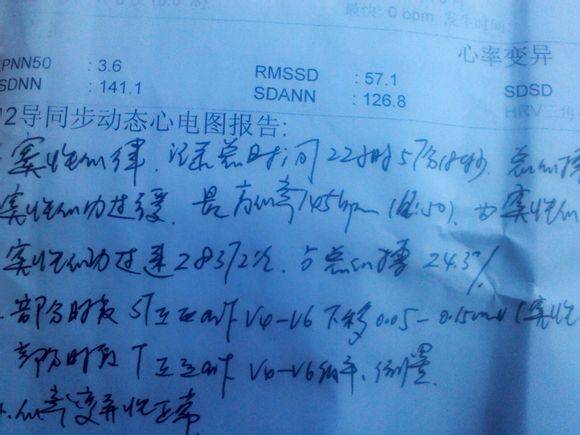 最快: 0 bpm 发生时间
心率变异
PNN50 : 3.6 RMSSD : 57.1 SDSD
SDNN : 141.1 SDANN : 126.8 HRV三角
12导同步动态心电图报告:
窦性心律,记录总时间22小时57分18秒,总心搏
窦性心动过缓,最高心率145bpm ( :50),为窦性心
窦性心动过速28372次,占总心搏24.3%
部分时段ST在 V4-V6下移0.05-0.15mv(窦性
部分时段T V4-V6低平、倒置
心率变异性正常